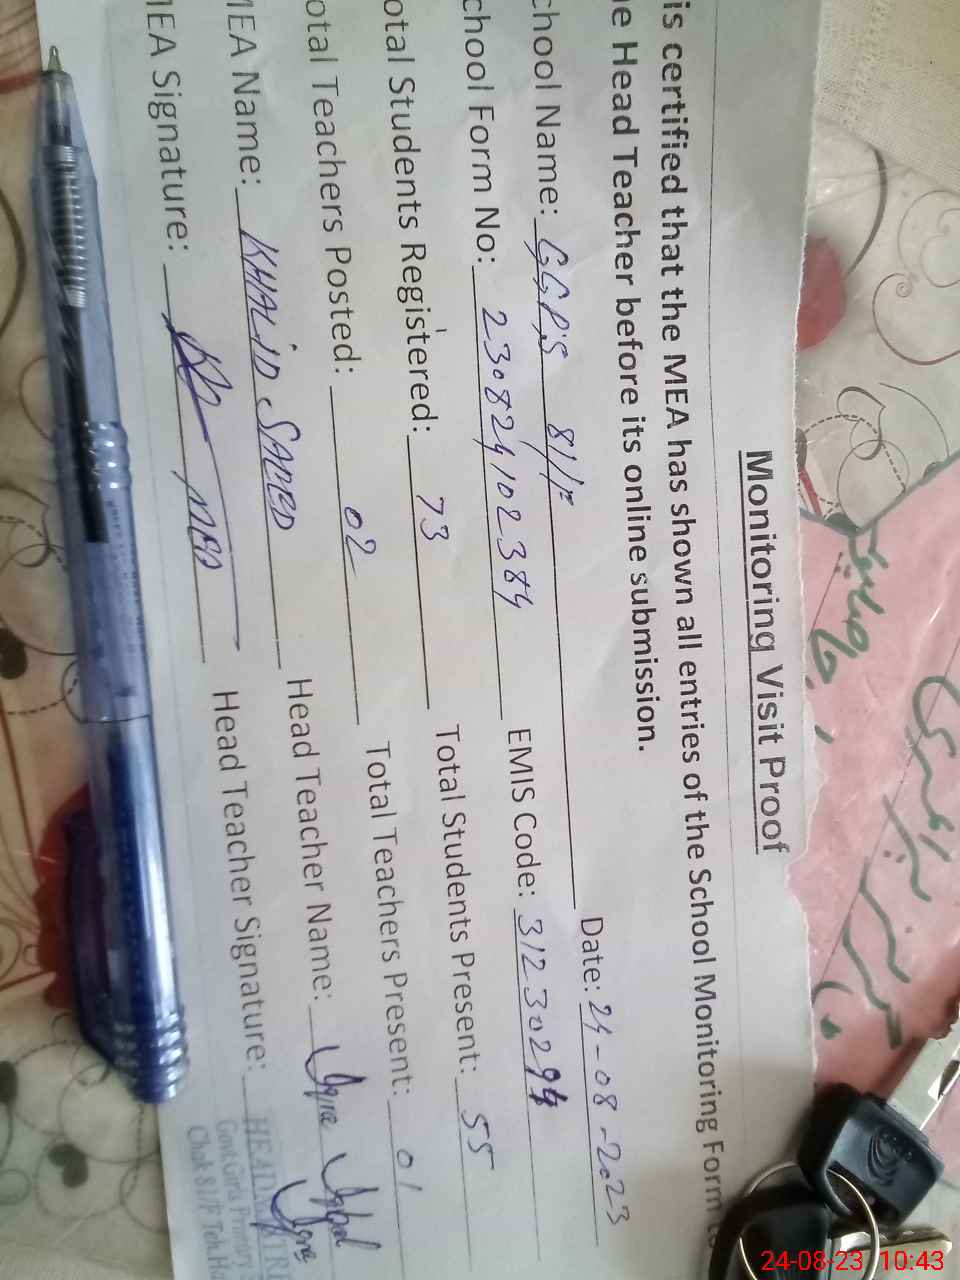 Monitoring Visit Proof
is certified that the MEA has shown all entries of the School Monitoring Form to
e Head Teacher before its online submission.
Date: 24-08-2023
chool Name: GGPS 81/F
chool Form No: 230824102384 EMIS Code: 31230294
otal Students Registered: 73 Total Students Present: 55
otal Teachers Posted: 02 Total Teachers Present: 01
MEA Name: KHALID SAEED Head Teacher Name: Iqra Iqbal
MEA Signature: MEA Head Teacher Signature: Iqra
Govt. Girls Primary
Chak 81/F Teh.
24-08-23 10:43